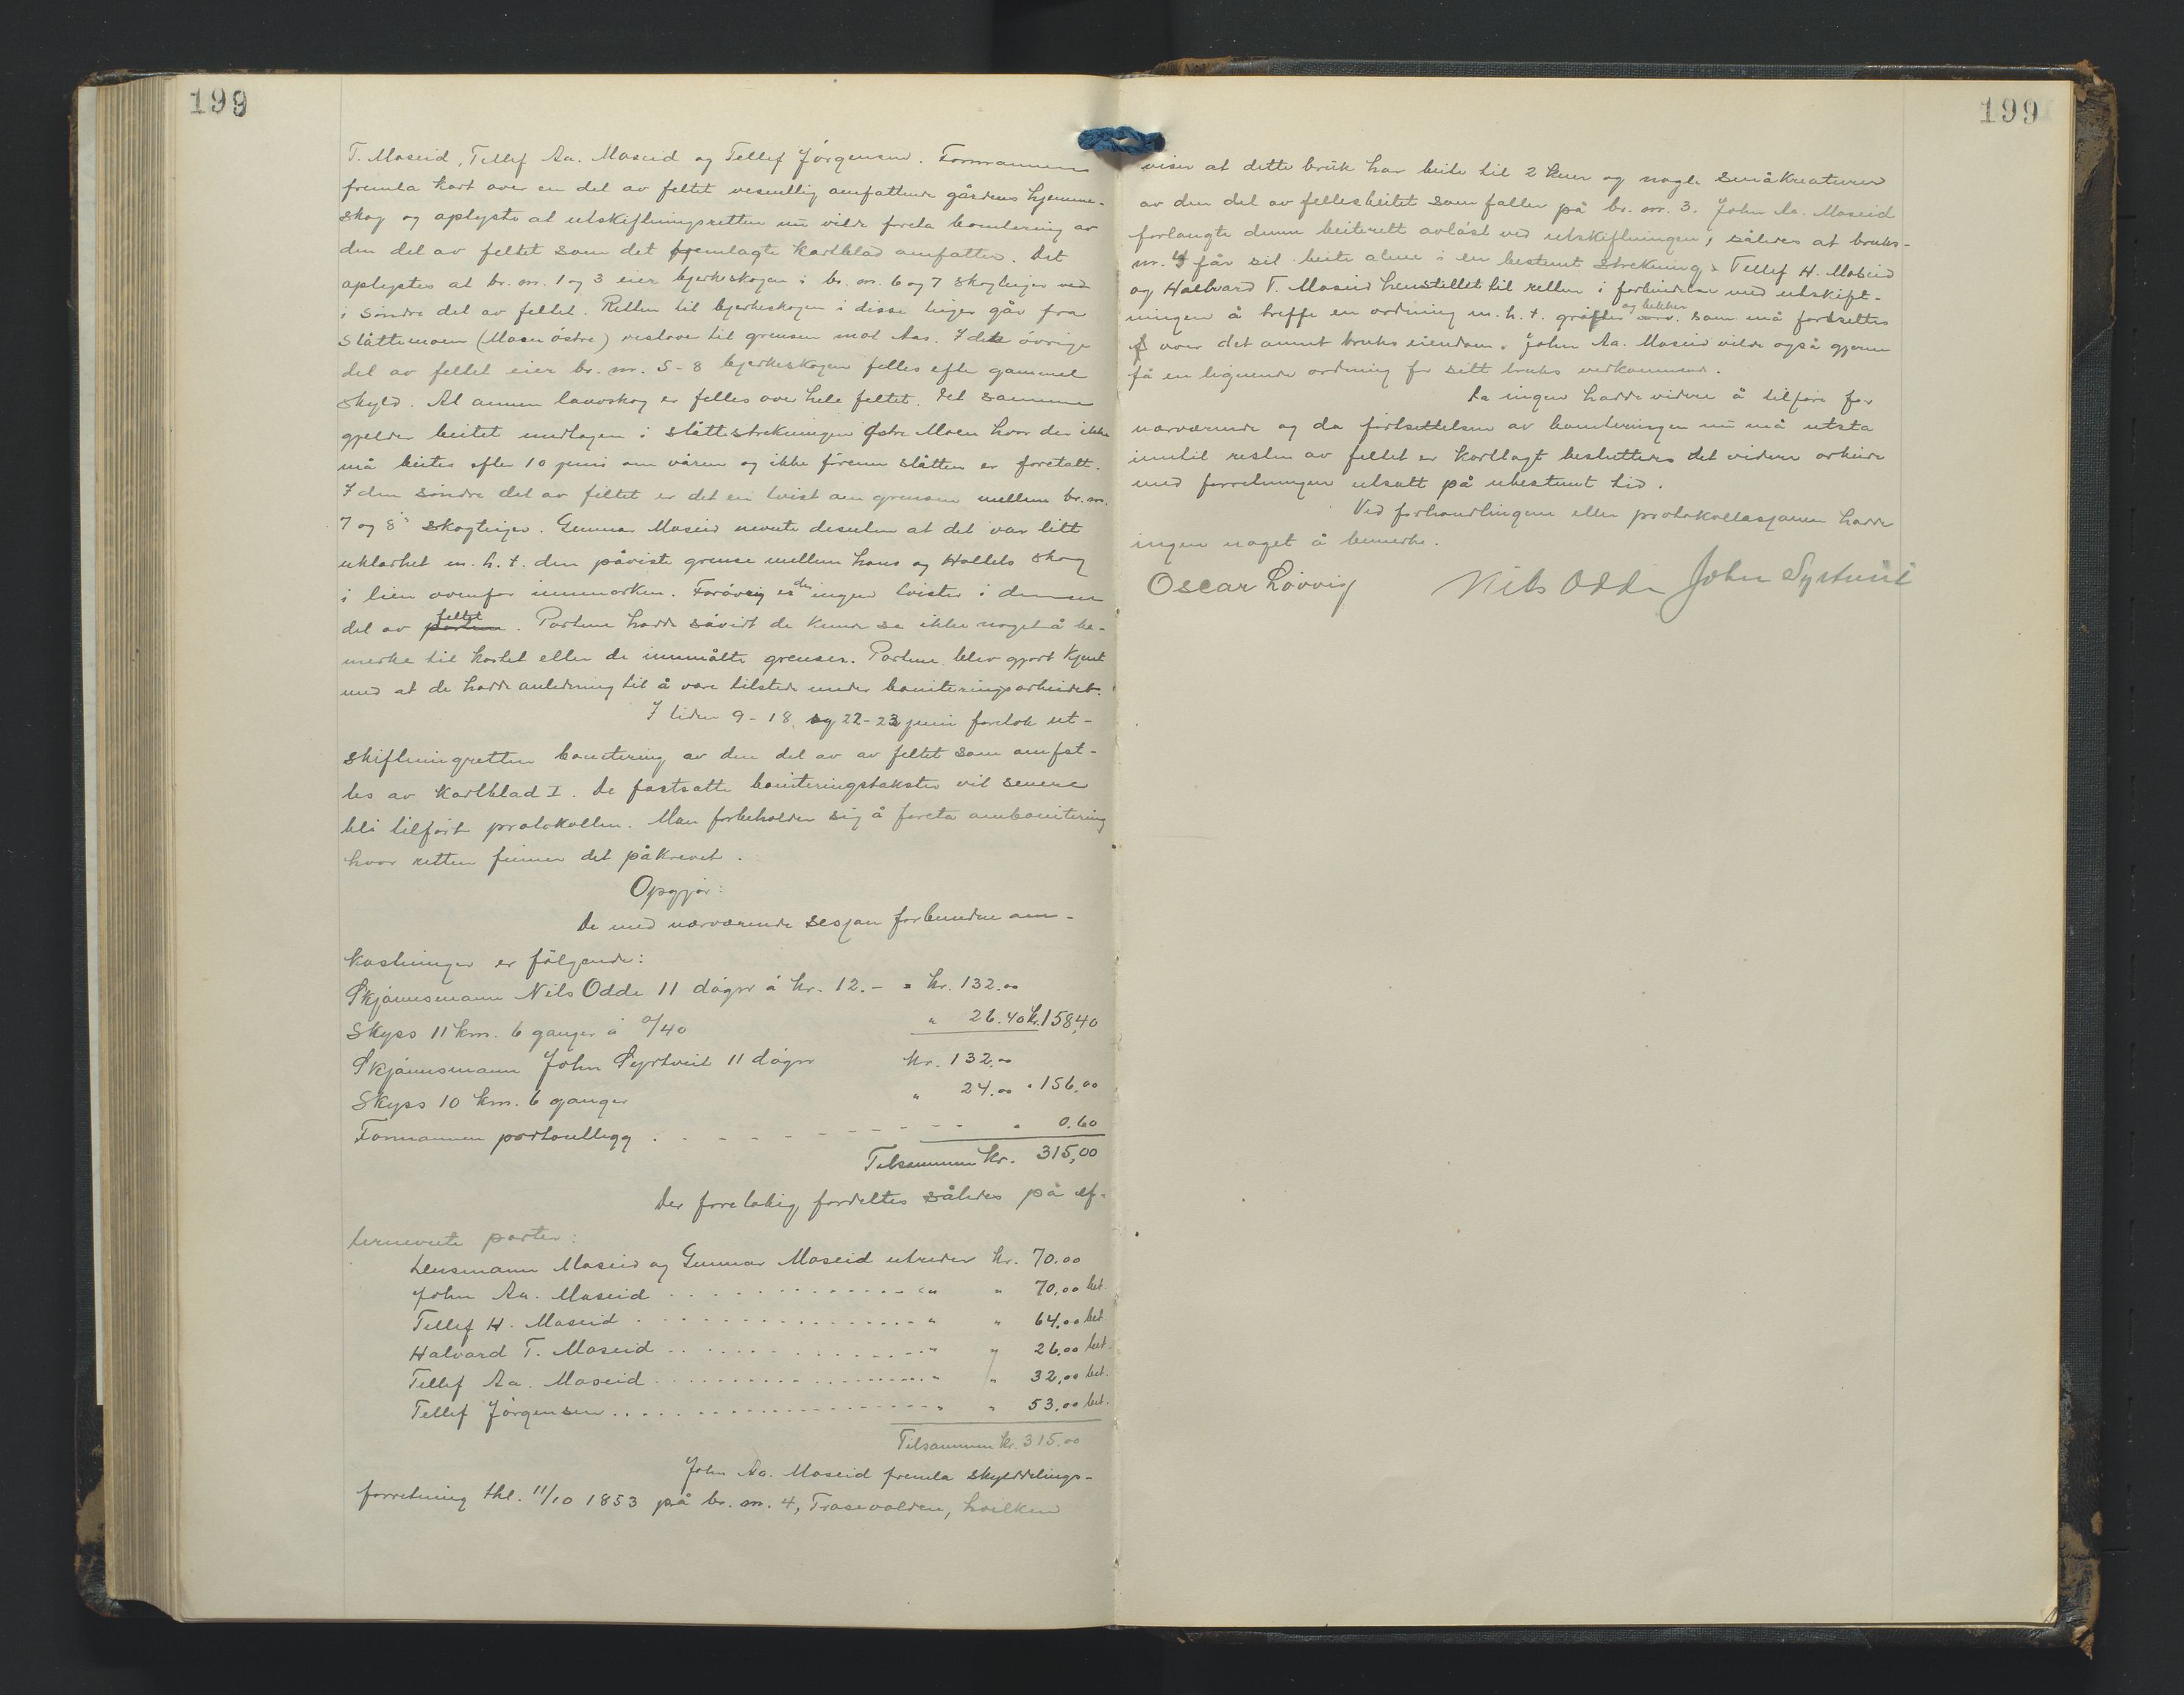 199
T. Moseid, Tellef Aa. Moseid og Tellef Jörgensen. Formannen
fremla kart over en del av feltet vesentlig omfattende gårdens hjemme-
skog og oplyste at utskiftningsretten nu vilde foreta bonitering av
den del av feltet som det fremlagte kartblad omfatter. Det
oplystes at br. nr. 1 og 3 eier bjerkeskogen i br. nr. 6 og 7 skogteiger ved
i söndre del av feltet. Retten til bjerkeskogen i disse teiger går fra
Slåttemoen (Moen östre) vestover til grensen mot Aas. I dette övrige
del av feltet eier br. nr. 5-8 bjerkeskogen felles efter gammel
skyld. Al annen lauvskog er felles over hele feltet. Det samme
gjelder beitet undtagen i slåttestrekningen Östre Moen hvor der ikke
må beites efter 10 juni om våren og ikke förenn slåtten er foretatt.
I den söndre del av feltet er det en tvist om grensen mellem br. nr.
7 og 8s skogteiger. Gunnar Moseid nevnte desuten at det var litt
uklarhet m. h. t. den påviste grense mellem hans og skog
i lien ovenfor innmarken. Forövrig er der ingen tvister i denne
del av partene feltet. Partene hadde såvidt de kunde se ikke noget å be-
merke til kartet eller de innmålte grenser. Partene blev gjort kjent
med at de hadde anledning til å være tilstede under boniteringsarbeidet.
I tiden 9-18 og 22-23 juni foretok ut-
skiftningretten bonitering av den del av av feltet som omfat-
tes av kartblad I. De fastsatte boniteringstakster vil senere
bli tilfört protokollen. Man forbeholder sig å foreta ombonitering
hvor retten finner det påkrevet.
Opgjör:
De med nærværende sesjon forbundne om-
kostninger er fölgende:
Skjönnsmann Nils Odde 11 dögn à kr. 12.- = kr. 132.00
Skyss 11 km. 6 ganger à 0/40 " 26.40 kr. 158,40
Skjönnsmann John Syrtveit 11 dögn kr. 132.00
Skyss 10 km. 6 ganger " 24.00 " 156.00
Formannen portoutlegg . - - - - - - - - - " 0.60
Tilsammen kr. 315,00
Der forelöbig fordeltes således på ef-
ternevnte parter:
Lensmann Moseid og Gunnar Moseid utreder kr. 70.00
John Aa. Moseid . . . . . . . . . . . . . " " 70,00 bet.
Tellef H. Moseid . . . . . . . . . . . . . " " 64.00 bet.
Halvard T. Moseid . . . . . . . . . . . . " " 26.00 bet.
Tellef Aa. Moseid . . . . . . . . . . . . . " " 32,00 bet.
Tellef Jörgensen . . . . . . . . . . . . . . " " 53.00 bet.
Tilsammen kr. 315.00
John Aa. Moseid fremla skylddelings-
forretning thl. 11/10 1853 på br. nr. 4, Trasevolden, hvilken
199
viser at dette bruk har beite til 2 kuer og nogle småkreaturer
av den del av fellesbeitet som faller på br. nr. 3. John Aa. Moseid
forlangte denne beiterett avlöst ved utskiftningen, således at bruks-
nr. 4 får sit beite alene i en bestemt strekning. Tellef H. Moseid
og Halvard T. Moseid henstillet til retten i forbindelse med utskift-
ningen å treffe en ordning m. h. t. gröfter og bekker som må fortsettes
over det annet bruks eiendom. John Aa. Moseid vilde også gjerne
få en lignende ordning for sitt bruks vedkommende.
Da ingen hadde videre å tilföre for
nærværende og da fortsettelsen av boniteringen nu må utstå
inntil resten av feltet er kartlagt besluttes det videre arbeide
med forretningen utsatt på ubestemt tid.
Ved forhandlingene eller protokollasjonen hadde
ingen noget å bemerke.
Oscar Lövvig Nils Odde John Syrtveit